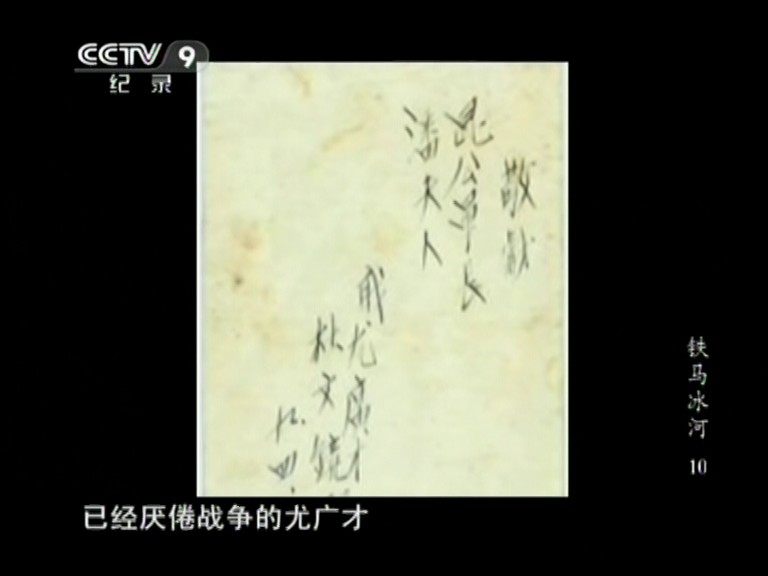 CCTV 9
纪录
敬献
昆公军长
潘夫人
尤广才
杜文镜
铁马冰河 10
已经厌倦战争的尤广才